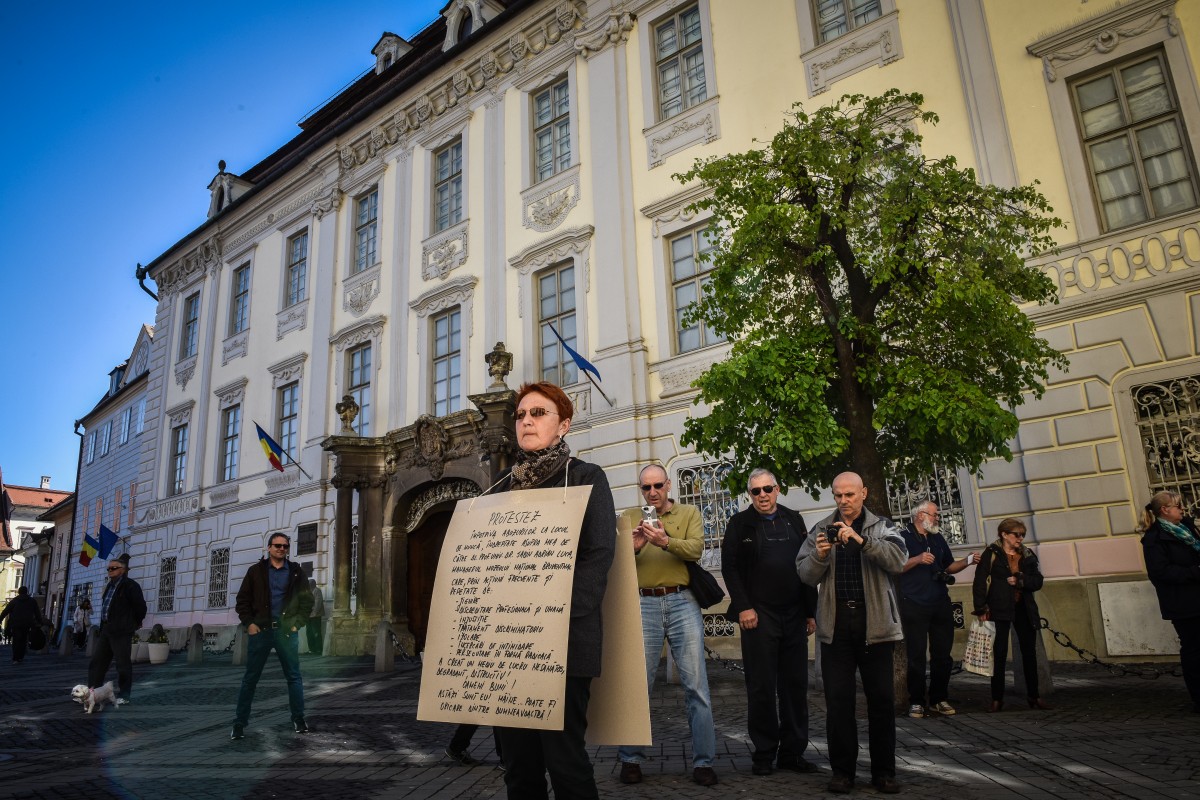 PROTESTEZ
ÎMPOTRIVA ABUZURILOR LA LOCUL
DE MUNCĂ, ÎNDREPTATE ASUPRA MEA DE
CĂTRE PROF. UNIV. DR. SABIN ADRIAN LUCA,
MANAGERUL MUZEULUI NAȚIONAL BRUKENTHAL
CARE, PRIN ACȚIUNI FRECVENTE ȘI
REPETATE DE:
- DESCONSIDERARE PROFESIONALĂ ȘI UMANĂ
- INJUSTIȚIE
- TRATAMENT DISCRIMINATORIU
- PROVOCARE
- INTIMIDARE
- PERSECUTARE ÎN FORMĂ RADICALĂ
A CREAT UN MEDIU DE LUCRU NESĂNĂTOS,
DEGRADANT, DISTRUCTIV!
OAMENI BUNI!
ASTĂZI SUNT EU! MÂINE... POATE FI
ORICARE DINTRE DUMNEAVOASTRĂ!